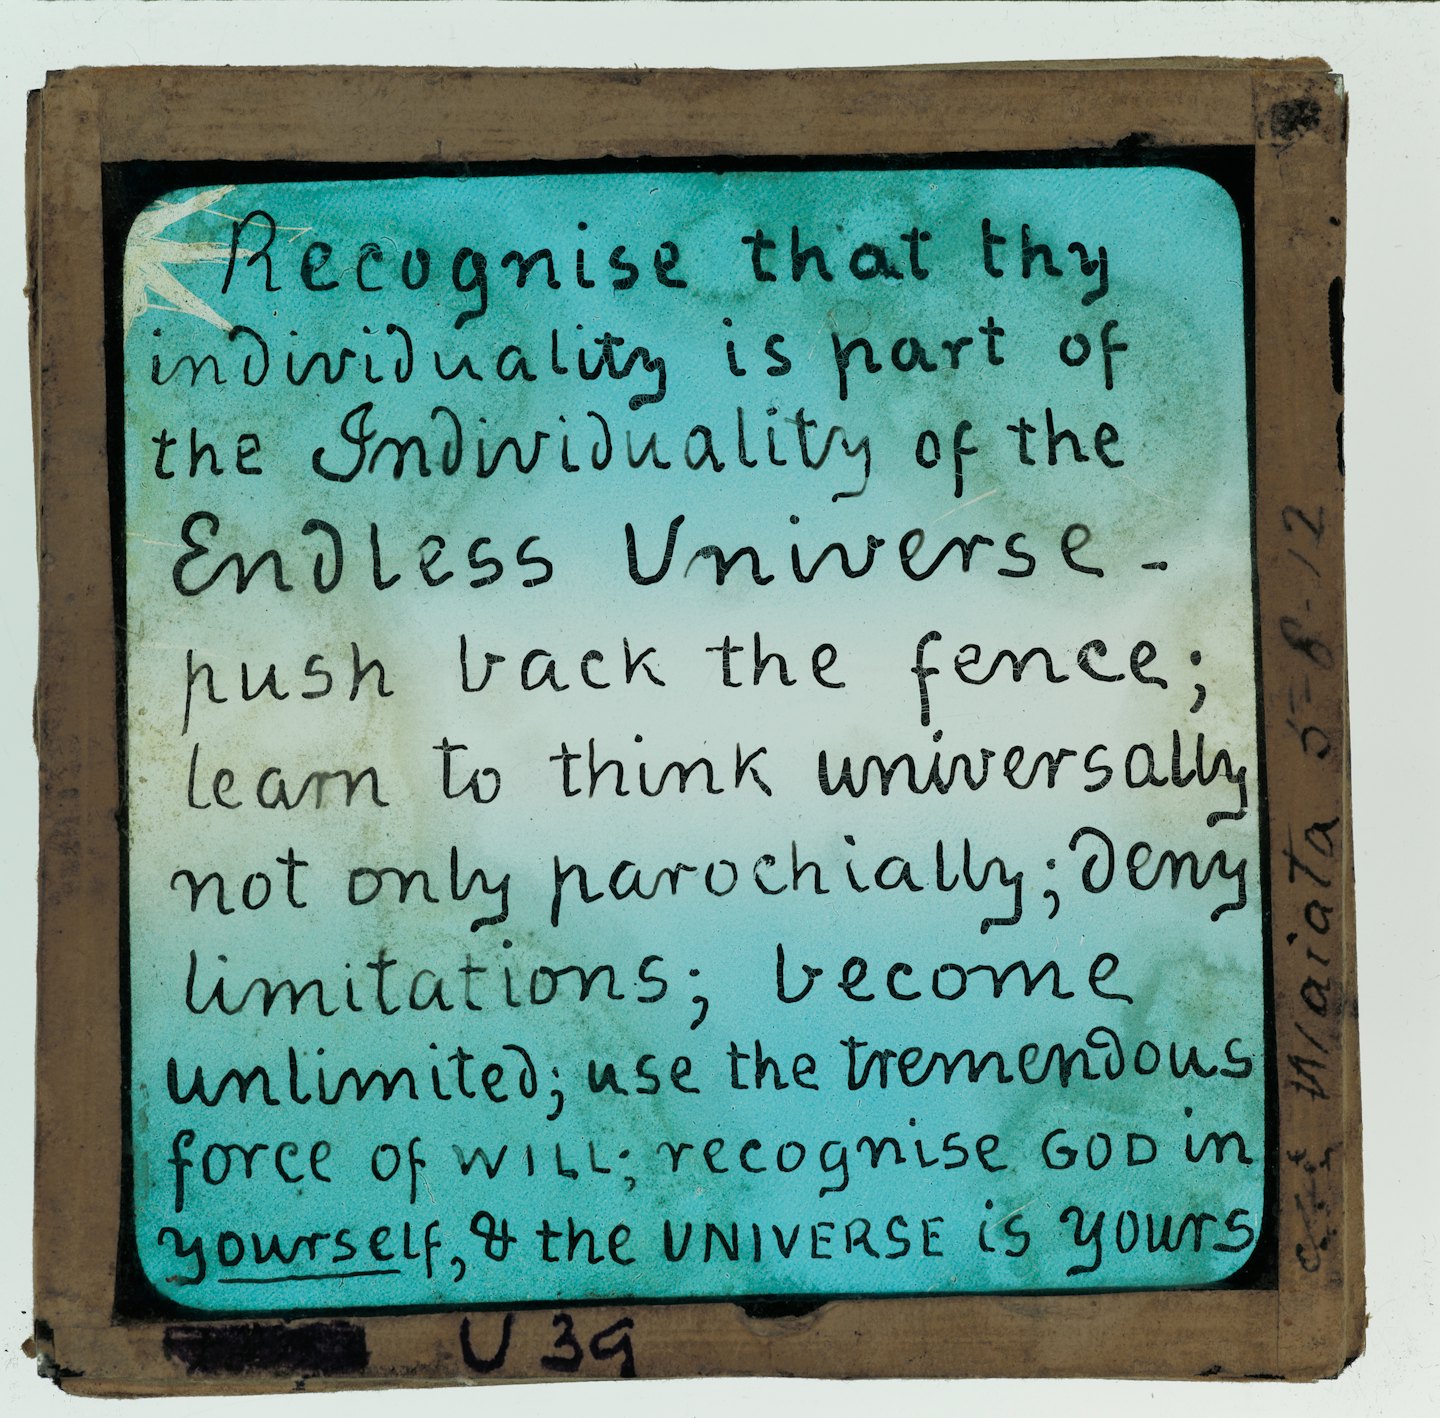 Recognise that thy
individuality is part of
the Individuality of the
Endless Universe -
push back the fence;
learn to think universally
not only parochially; deny
limitations; become
unlimited; use the tremendous
force of WILL; recognise GOD in
yourself, & the UNIVERSE is yours
U 39
5-8-12